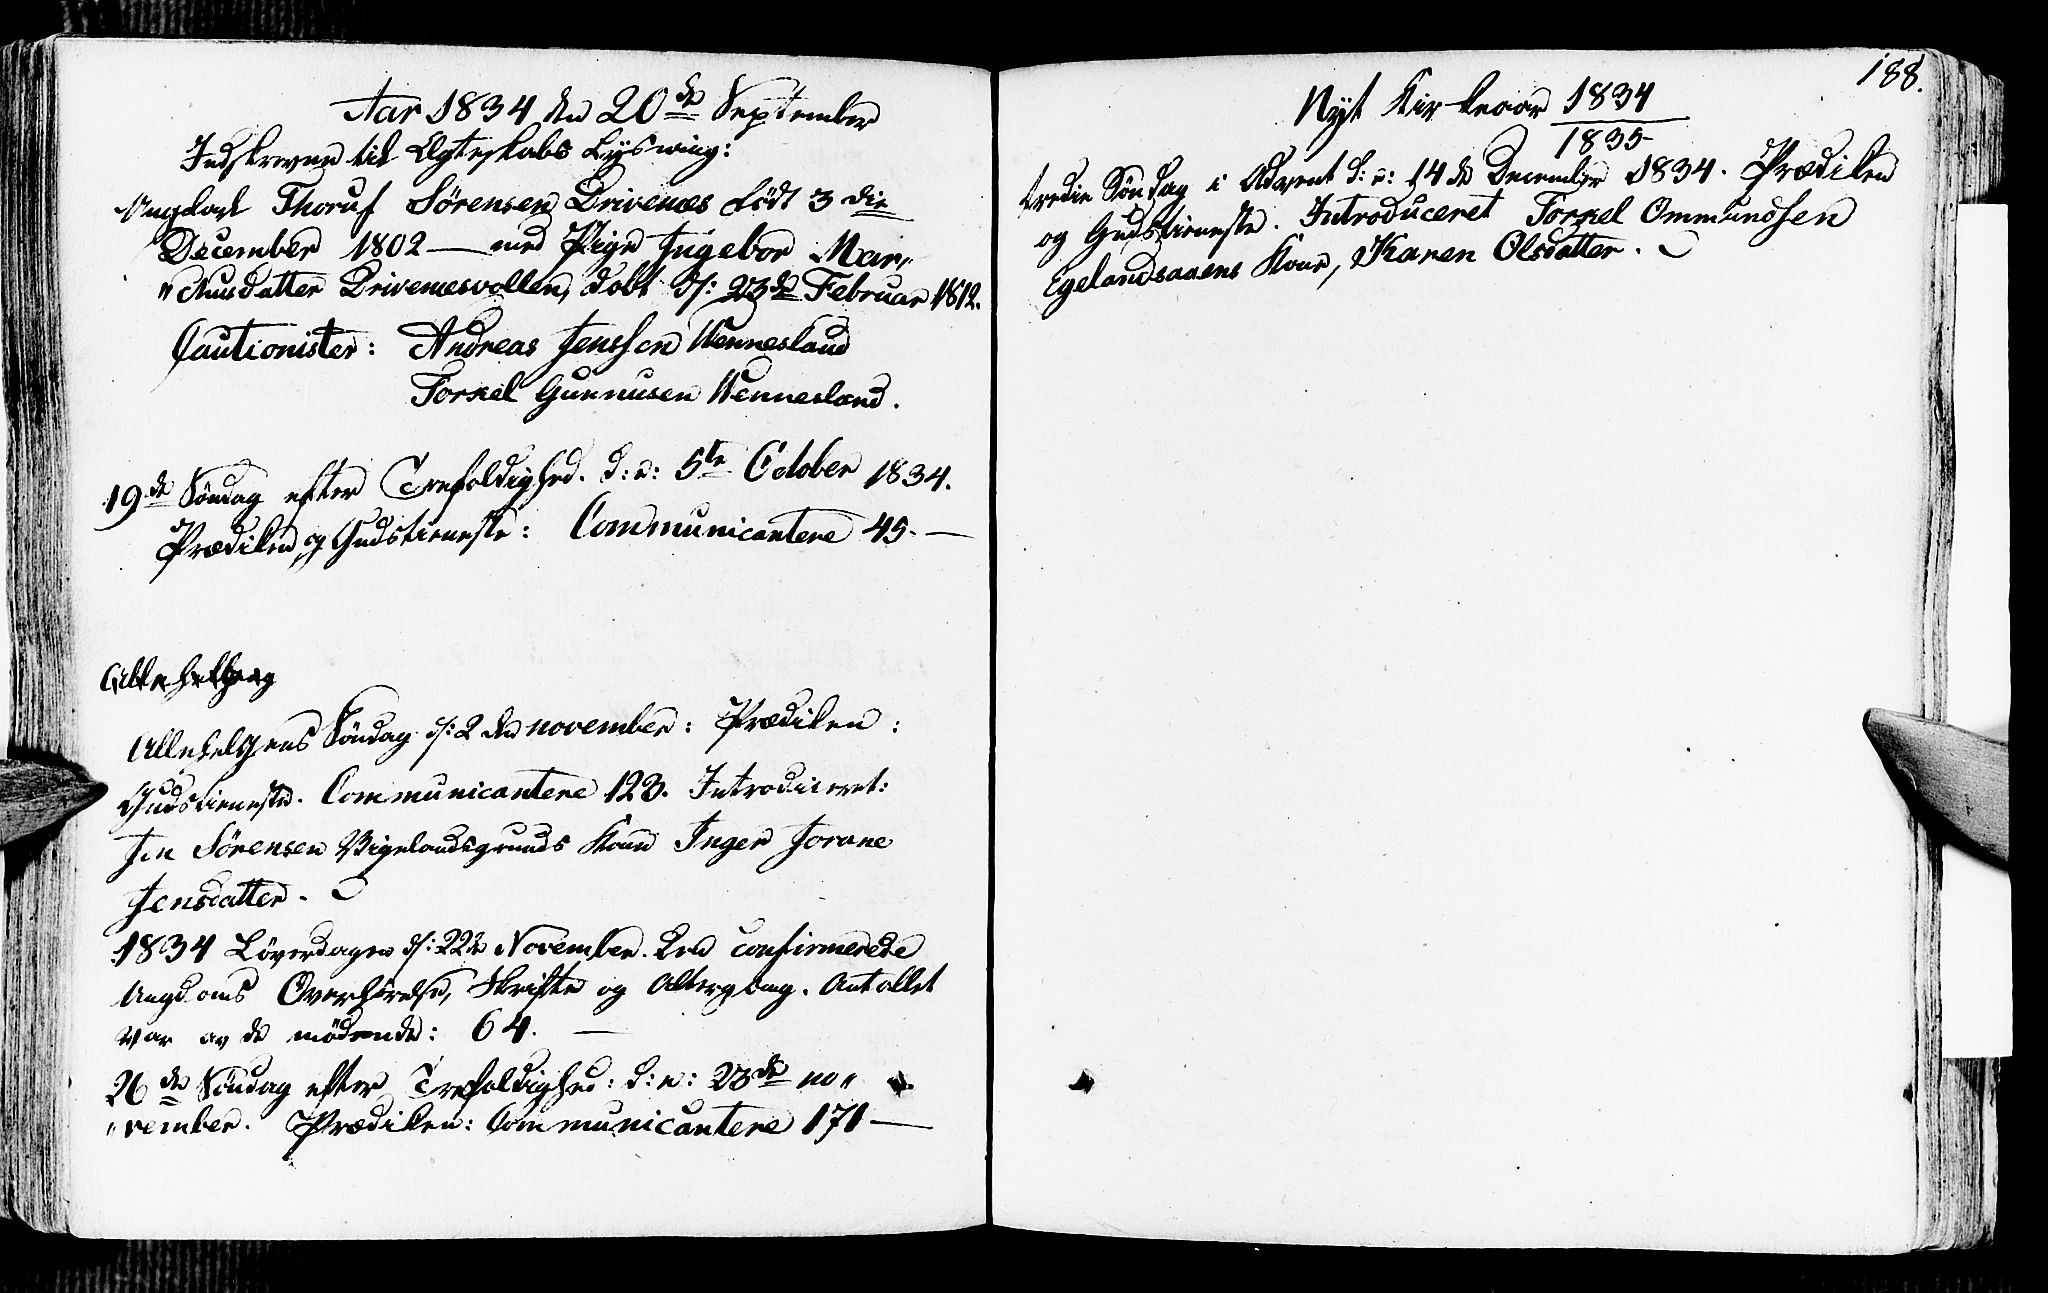 Aar 1834 den 20de September
Indskrevne til Ægteskabs Lysning:
Ungkarl Thoruf Sörensen Drivenæs födt 3die
December 1802 — med Pige Ingebor Mar„
„kusdatter Drivenæsvollen, döbt d: 23de Februar 1812.
Cautionister: Andreas Jenssen Wennesland
Torkel Gunnusen Wennesland.
19de Söndag efter Trefoldighed. d: e: 5te October 1834.
Prædiken og Gudstieneste: Communicantere 45. —
Allehelgens Söndag d: 2den november: Prædiken:
Gudstieneste. Communicantere 123. Introduceret:
Jen Sörensen Vigelandsgrunds Kone Inger Jorane
Jensdatter.
1834 Löverdagen d: 22de November. Den confirmerede
Ungdoms Overhörelse, Skrifte og Altergang. Antallet
var av de mödende: 64. —
26de Söndag efter Trefoldighed: d: e: 23de no„
„vember. Prædiken: Communicantere 171 —
188.
Nyt Kirkeaar 1834
1835
tredie Söndag i Advent d: e: 14de December 1834. Prædiken
og Gudstieneste. Introduceret Torkel Ommundsen
Egelandsaaens Kone, Karen Olsdatter.